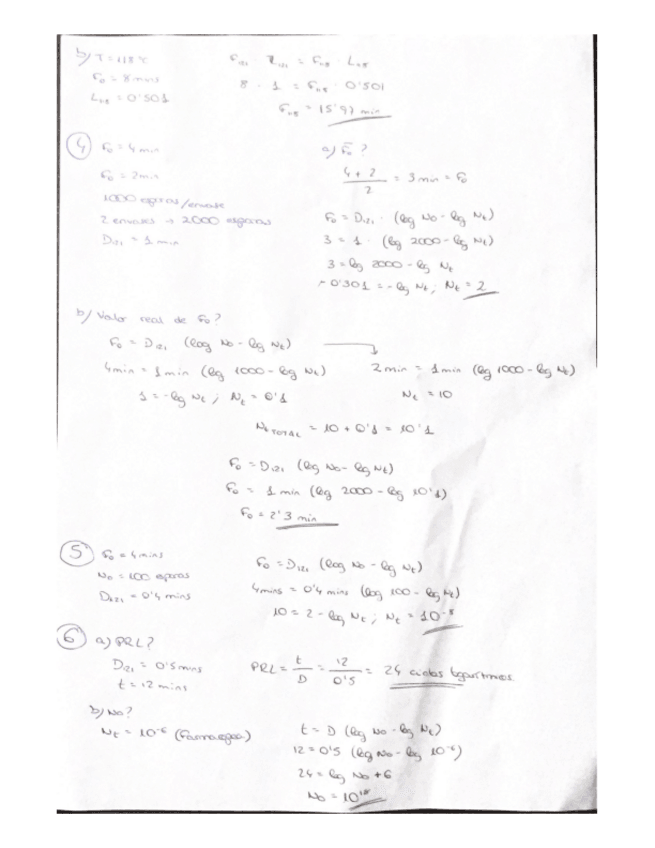 b) T = 118 °C
F₀ = 8 mins
L₁₁₈ = 0'501
F₁₂₁ · L₁₂₁ = F₁₁₈ · L₁₁₈
8 · 1 = F₁₁₈ · 0'501
F₁₁₈ = 15'97 min
④ F₀ = 4 min
F₀ = 2 min
1000 esporas/envase
2 envases → 2000 esporas
D₁₂₁ = 1 min
a) F̄₀ ?
4 + 2 / 2 = 3 min = F₀
F₀ = D₁₂₁ · (log N₀ - log Nt)
3 = 1 · (log 2000 - log Nt)
3 = log 2000 - log Nt
-0'301 = -log Nt ; Nt = 2
b) Valor real de F₀ ?
F₀ = D₁₂₁ (log N₀ - log Nt)
4 min = 1 min (log 1000 - log Nt)
1 = -log Nt ; Nt = 0'1
2 min = 1 min (log 1000 - log Nt)
Nt = 10
Nt TOTAL = 10 + 0'1 = 10'1
F₀ = D₁₂₁ (log N₀ - log Nt)
F₀ = 1 min (log 2000 - log 10'1)
F₀ = 2'3 min
⑤ F₀ = 4 mins
N₀ = 100 esporas
D₁₂₁ = 0'4 mins
F₀ = D₁₂₁ (log N₀ - log Nt)
4 mins = 0'4 mins (log 100 - log Nt)
10 = 2 - log Nt ; Nt = 10⁻⁸
⑥ a) PRL?
D₁₂₁ = 0'5 mins
t = 12 mins
PRL = t / D = 12 / 0'5 = 24 ciclos logarítmicos
b) N₀?
Nt = 10⁻⁶ (Farmacopea)
t = D (log N₀ - log Nt)
12 = 0'5 (log N₀ - log 10⁻⁶)
24 = log N₀ + 6
N₀ = 10¹⁸